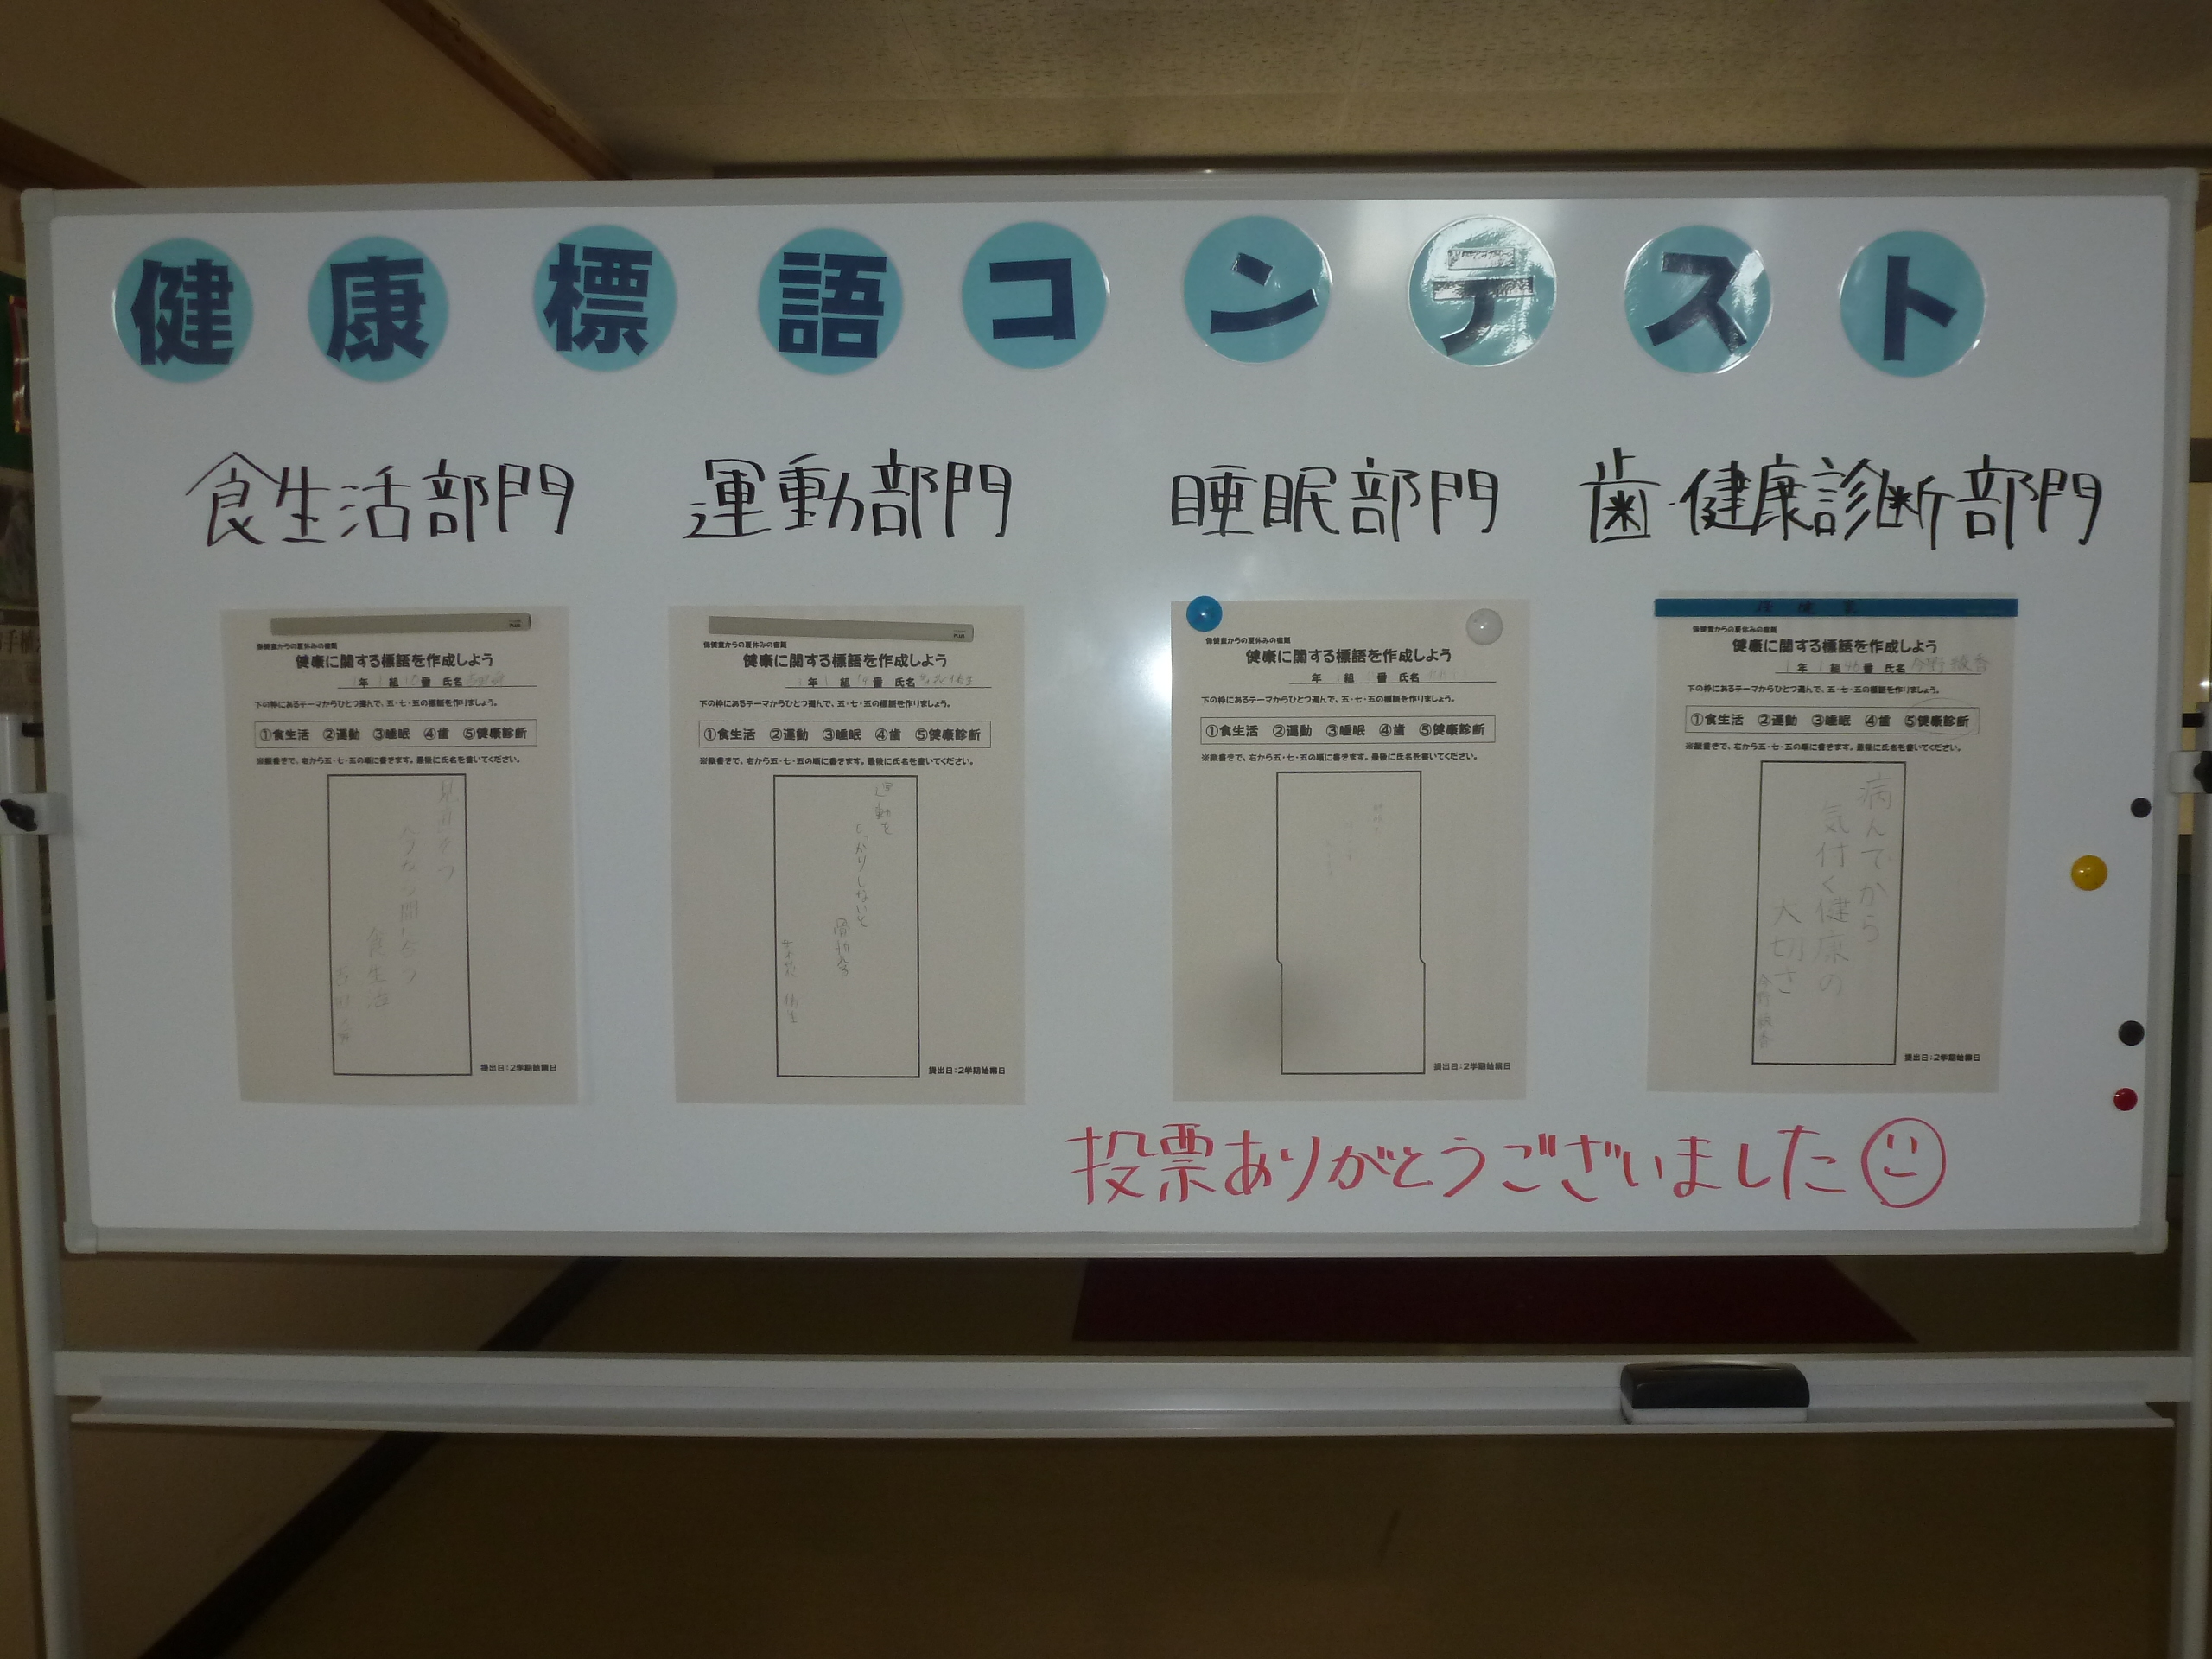 健康標語コンテスト
食生活部門
運動部門
睡眠部門
歯・健康診断部門
保健室からの夏休みの宿題
健康に関する標語を作成しよう
年 組 番 氏名
下の枠にあるテーマからひとつ選んで、五・七・五の標語を作りましょう。
①食生活 ②運動 ③睡眠 ④歯 ⑤健康診断
※縦書きで、右から五・七・五の順に書きます。最後に氏名を書いてください。
見直そう
今なら間に合う
食生活
提出日：2学期始業日
保健室からの夏休みの宿題
健康に関する標語を作成しよう
年 組 番 氏名
下の枠にあるテーマからひとつ選んで、五・七・五の標語を作りましょう。
①食生活 ②運動 ③睡眠 ④歯 ⑤健康診断
※縦書きで、右から五・七・五の順に書きます。最後に氏名を書いてください。
運動を
しっかりしないと
提出日：2学期始業日
保健室からの夏休みの宿題
健康に関する標語を作成しよう
年 組 番 氏名
下の枠にあるテーマからひとつ選んで、五・七・五の標語を作りましょう。
①食生活 ②運動 ③睡眠 ④歯 ⑤健康診断
※縦書きで、右から五・七・五の順に書きます。最後に氏名を書いてください。
提出日：2学期始業日
保健室
保健室からの夏休みの宿題
健康に関する標語を作成しよう
1年 1組 46番 氏名 今野 綾香
下の枠にあるテーマからひとつ選んで、五・七・五の標語を作りましょう。
①食生活 ②運動 ③睡眠 ④歯 ⑤健康診断
※縦書きで、右から五・七・五の順に書きます。最後に氏名を書いてください。
病んでから
気付く健康の
大切さ
今野 綾香
提出日：2学期始業日
投票ありがとうございました